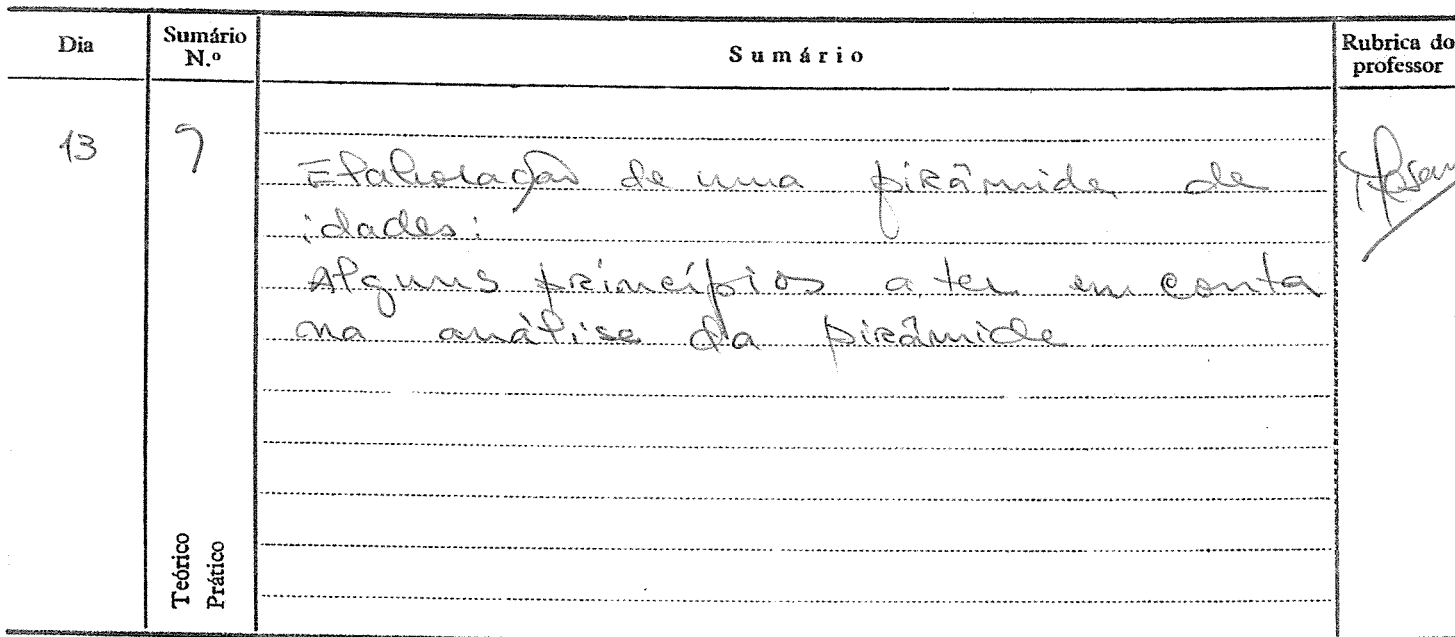 Dia Sumário N.º Sumário Rubrica do professor
13
Elaboração de uma pirâmide de
idades:
Alguns princípios a ter em conta
na análise da pirâmide
Teórico
Prático